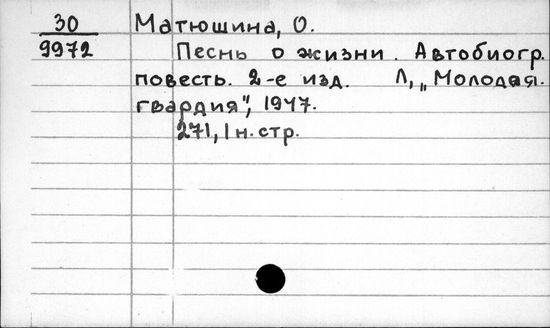 30 Матюшина, О.
9972 Песнь о жизни. Автобиогр.
повесть. 2-е изд. Л, „Молодая.
гвардия", 1947.
271, 1 н. стр.